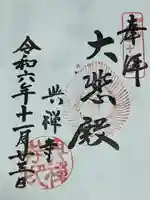 奉拝
大紫殿
興禅寺
令和六年十一月廿二日